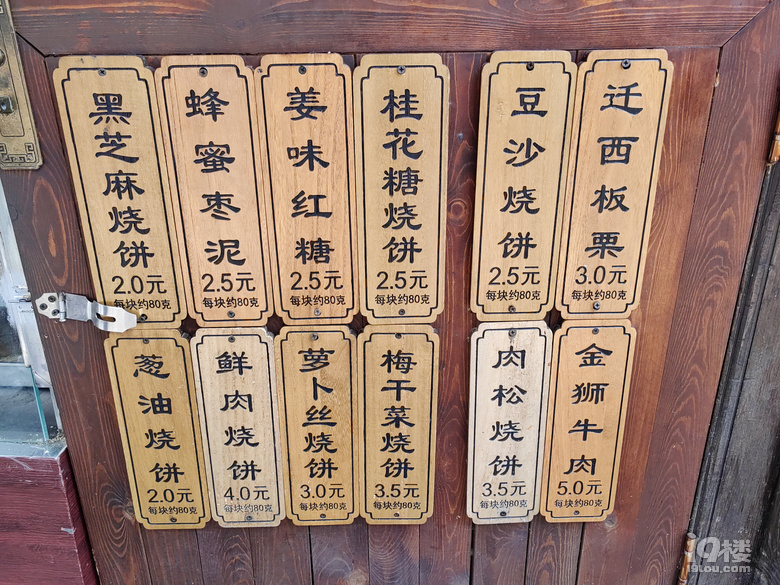 黑芝麻烧饼
2.0元
每块约80克
蜂蜜枣泥
2.5元
每块约80克
姜味红糖
2.5元
每块约80克
桂花糖烧饼
2.5元
每块约80克
豆沙烧饼
2.5元
每块约80克
迁西板栗
3.0元
每块约80克
葱油烧饼
2.0元
每块约80克
鲜肉烧饼
4.0元
每块约80克
萝卜丝烧饼
3.0元
每块约80克
梅干菜烧饼
3.5元
每块约80克
肉松烧饼
3.5元
每块约80克
金狮牛肉
5.0元
每块约80克
19楼
19lou.com